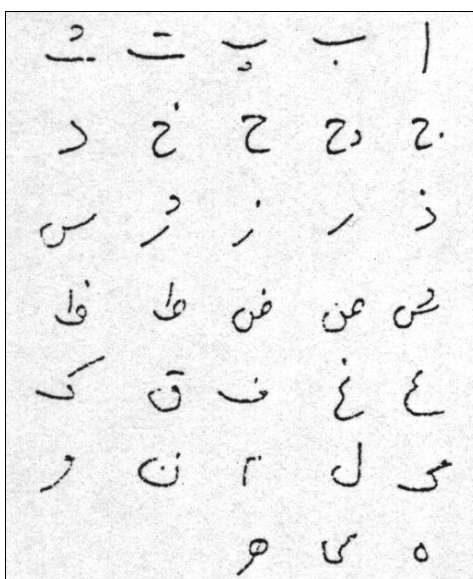 ا ب پ ت ث
ج چ ح خ د
ذ ر ز ژ س
ش ص ض ط ظ
ع غ ف ق ک
گ ل م ن و
ه ی